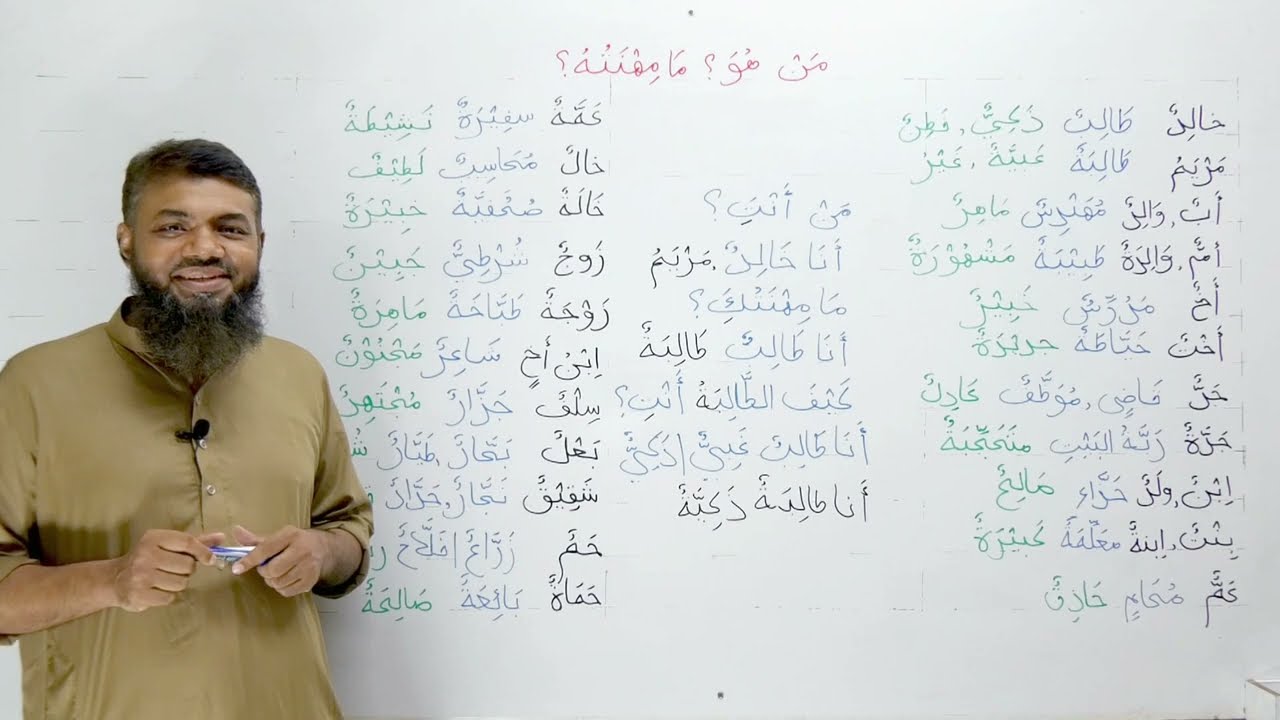 مَنْ هُوَ؟ مَا مِهْنَتُهُ؟
خالِدٌ طَالِبٌ ذَكِيٌّ، فَطِنٌ
مَرْيَمُ طَالِبَةٌ غَبِيَّةٌ،
أَبٌ، وَالِدٌ مُهَنْدِسٌ مَاهِرٌ
أُمٌّ، وَالِدَةٌ طَبِيْبَةٌ مَشْهُوْرَةٌ
أَخٌ مَدُرِّسٌ خَبِيْرٌ
أُخْتٌ خَيَّاطَةٌ جَدِيْدَةٌ
جَدٌّ قَاضِي، مُوَظَّفٌ عَادِلٌ
جَدَّةٌ رَبَّةُ البَيْتِ
اِبْنٌ، وَلَدٌ صَالِحٌ
بِنْتٌ، اِبنةٌ مُعَلِّمَةٌ كَبِيْرَةٌ
عَمٌّ مُحَامٍ حَاذِقٌ
مَنْ أَنْتَِ؟
أَنَا خَالِدٌ، مَرْيَمُ
مَا مِهْنَتُكَِ؟
أَنَا طَالِبٌ طَالِبَةٌ
كَيْفَ الطَّالِبَةُ أَنْتِ؟
أَنَا طَالِبٌ غَبِيٌّ | ذَكِيٌّ
أَنا طالِبَةٌ ذَكِيَّةٌ
عَمَّةٌ سفِيْرَةٌ نَشِيْطَةٌ
خالٌ مُحَاسِبٌ لَطِيْفٌ
خَالَةٌ صُحُفِيَّةٌ خَبِيْرَةٌ
زَوجٌ شُرْطِيٌّ
زَوْجَةٌ طَبَّاخَةٌ مَاهِرَةٌ
اِبْنُ أَخٍ شَاعِرٌ مَجْنُوْنٌ
سِلْفٌ جَزَّارٌ مُجْتَهِدٌ
بَعْلٌ بَحَّارٌ، طَيَّارٌ
شَقِيْقٌ نَجَّارٌ، حَدَّادٌ
حَمٌ زَرَّاعٌ | فَلَّاحٌ
حَمَاةٌ بَائِعَةٌ صَالِحَةٌ